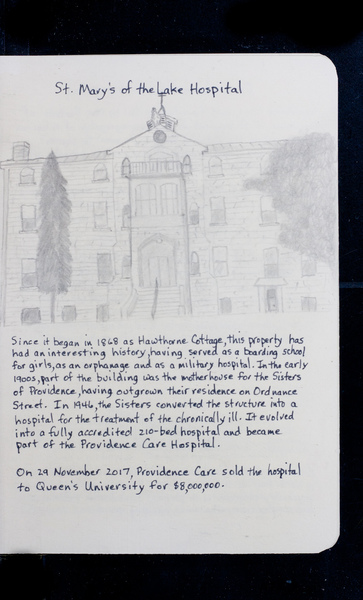 St. Mary's of the Lake Hospital
Since it began in 1868 as Hawthorne Cottage, this property has
had an interesting history, having served as a boarding school
for girls, as an orphanage and as a military hospital. In the early
1900s, part of the building was the motherhouse for the Sisters
of Providence, having outgrown their residence on Ordnance
Street. In 1946, the Sisters converted the structure into a
hospital for the treatment of the chronically ill. It evolved
into a fully accredited 210-bed hospital and became
part of the Providence Care Hospital.
On 29 November 2017, Providence Care sold the hospital
to Queen's University for $8,000,000.